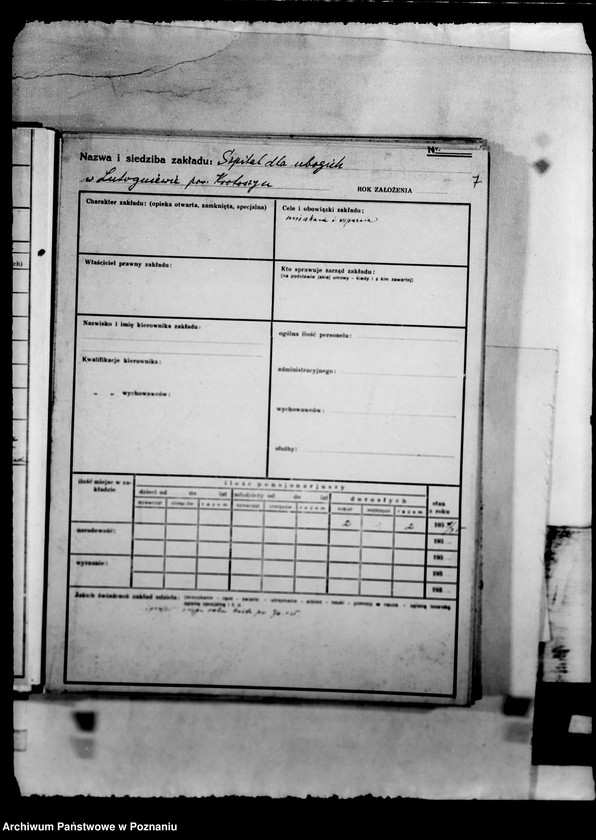 Nr.
Nazwa i siedziba zakładu: Szpital dla ubogich
w Lutogniewie pow. Krotoszyn
7
ROK ZAŁOŻENIA
Charakter zakładu: (opieka otwarta, zamknięta, specjalna)
Cele i obowiązki zakładu:
mieszkanie i
Właściciel prawny zakładu:
Kto sprawuje zarząd zakładu:
(na podstawie jakiej umowy - kiedy i z kim zawartej)
Nazwisko i imię kierownika zakładu:
ogólna ilość personelu:
Kwalifikacje kierownika:
administracyjnego:
„ „ wychowawców:
wychowawców:
służby:
ilość miejsc w zakładzie
ilość pensjonarjuszy
dzieci od do lat
młodzieży od do lat
dorosłych
stan z roku
dziewcząt
chłopców
razem
dziewcząt
chłopców
razem
kobiet
mężczyzn
razem
narodowość:
2
2
193
193
193
wyznanie:
193
193
Jakich świadczeń zakład udziela: (mieszkanie - opał - światło - utrzymanie - odzież - nauki - pomocy w nauce - opiekę lekarską
opiekę specjalną i t. p.
Archiwum Państwowe w Poznaniu